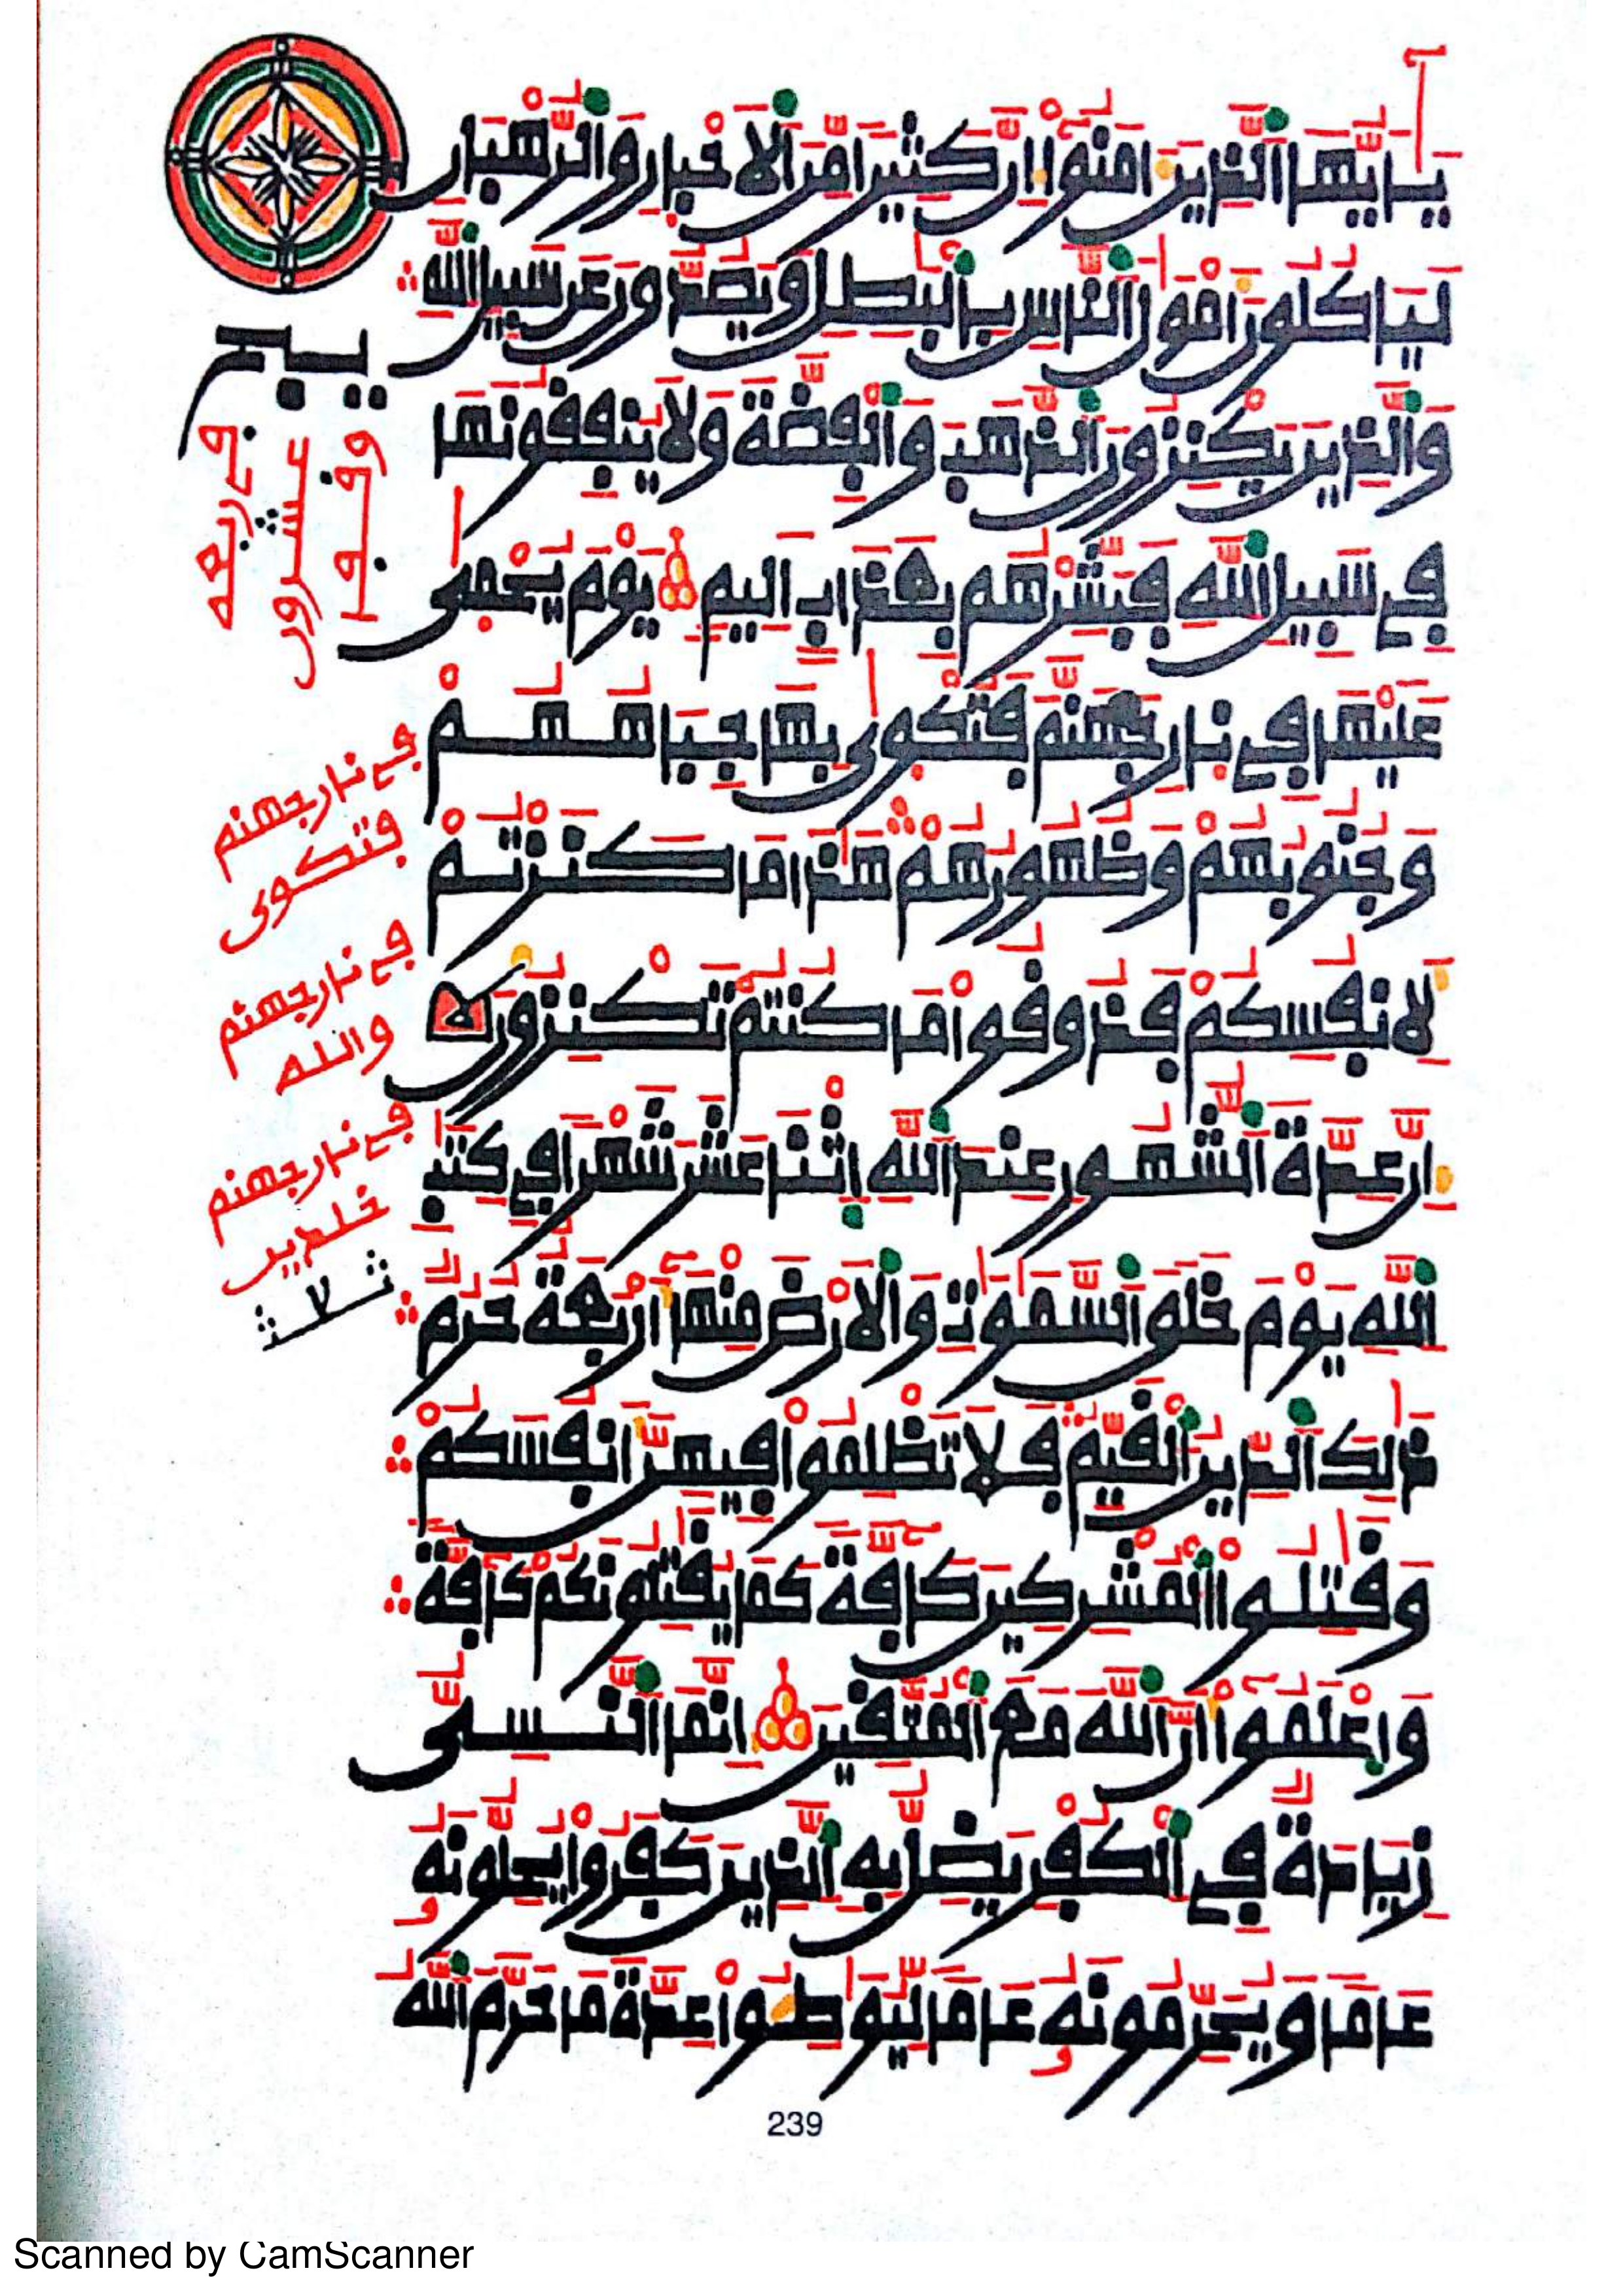 يَٰٓأَيُّهَا ٱلذِينَ ءَامَنُوٓا۟ إِنَّ كَثِيرًا مِّنَ ٱلَاحْبَارِ وَٱلرُّهْبَانِ
لَيَاكُلُونَ أَمْوَٰلَ ٱلنَّاسِ بِٱلْبَٰطِلِ وَيَصُدُّونَ عَن سَبِيلِ ٱللَّهِ
وَٱلذِينَ يَكْنِزُونَ ٱلذَّهَبَ وَٱلْفِضَّةَ وَلَا يُنفِقُونَهَا
فِے سَبِيلِ ٱللَّهِ فَبَشِّرْهُم بِعَذَابٍ اَلِيمٍ يَوْمَ يُحْمَىٰ
عَلَيْهَا فِے نَارِ جَهَنَّمَ فَتُكْوَىٰ بِهَا جِبَاهُهُمْ
وَجُنُوبُهُمْ وَظُهُورُهُمْ هَٰذَا مَا كَنَزْتُمْ
لِأَنفُسِكُمْ فَذُوقُوا۟ مَا كُنتُمْ تَكْنِزُونَ
إِنَّ عِدَّةَ ٱلشُّهُورِ عِندَ ٱللَّهِ ٱثْنَا عَشَرَ شَهْرًا فِے كِتَٰبِ
ٱللَّهِ يَوْمَ خَلَقَ ٱلسَّمَٰوَٰتِ وَٱلَارْضَ مِنْهَآ أَرْبَعَةٌ حُرُمٌ
ذَٰلِكَ ٱلدِّينُ ٱلْقَيِّمُ فَلَا تَظْلِمُوا۟ فِيهِنَّ أَنفُسَكُمْ
وَقَٰتِلُوا۟ ٱلْمُشْرِكِينَ كَآفَّةً كَمَا يُقَٰتِلُونَكُمْ كَآفَّةً
وَٱعْلَمُوٓا۟ أَنَّ ٱللَّهَ مَعَ ٱلْمُتَّقِينَ إِنَّمَا ٱلنَّسِىُّ
زِيَادَةٌ فِے ٱلْكُفْرِ يَضِلُّ بِهِ ٱلذِينَ كَفَرُوا۟ يُحِلُّونَهُۥ
عَامًا وَيُحَرِّمُونَهُۥ عَامًا لِّيُوَاطِـُٔوا۟ عِدَّةَ مَا حَرَّمَ ٱللَّهُ
فے نار جهنم
فتكوى
فے نار جهنم
والله
فے نار جهنم
خلدين
ثلاث
239
Scanned by CamScanner